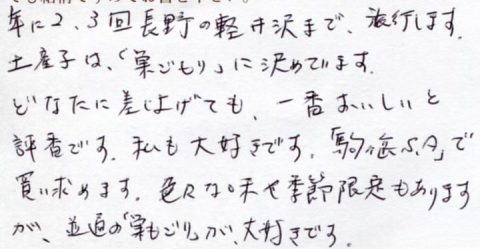 年に2、3回長野の軽井沢まで、旅行します。
土産子は、「巣ごもり」に決めています。
どなたに差し上げても、一番おいしいと
評番です。私も大好きです。「駒ヶ岳S.A」で
買い求めます。色々な味や季節限定もあります
が、並通の「巣もごり」が、大好きです。